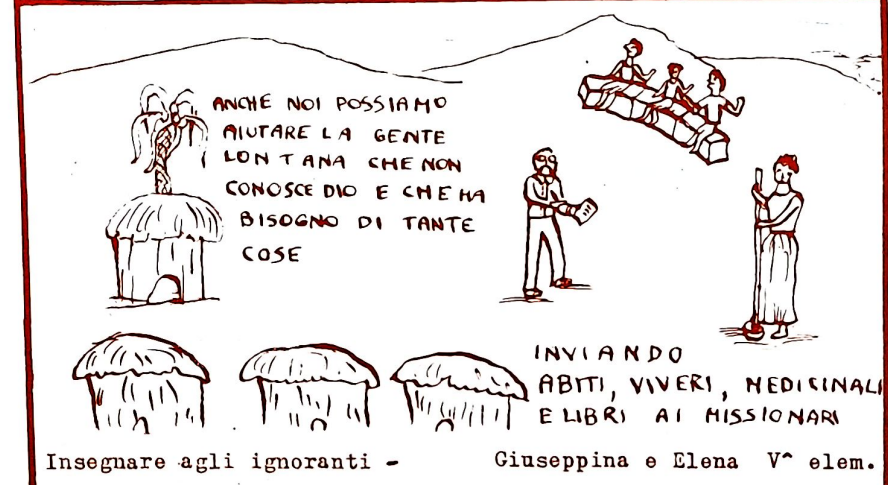 ANCHE NOI POSSIAMO
AIUTARE LA GENTE
LONTANA CHE NON
CONOSCE DIO E CHE HA
BISOGNO DI TANTE
COSE
INVIANDO
ABITI, VIVERI, MEDICINALI
E LIBRI AI MISSIONARI
Insegnare agli ignoranti - Giuseppina e Elena V^ elem.